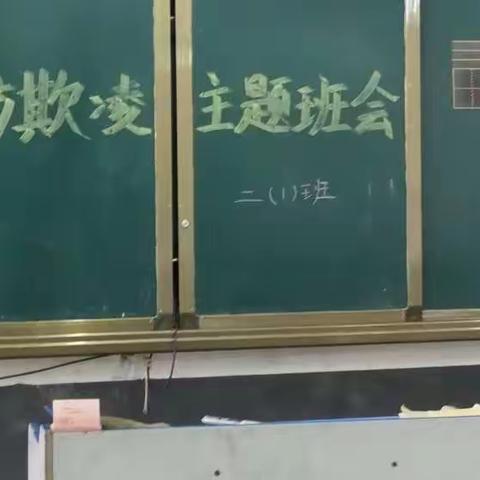 防欺凌主题班会
二(1)班